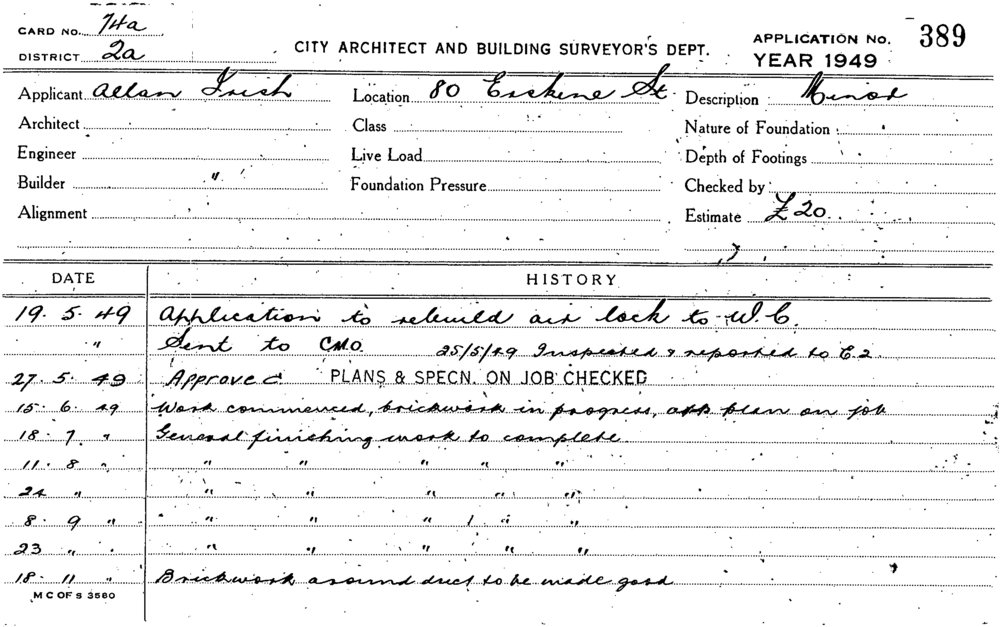 CARD NO. 74a
DISTRICT 2a
CITY ARCHITECT AND BUILDING SURVEYOR'S DEPT.
APPLICATION NO. 389
YEAR 1949
Applicant Allan Irish
Location 80 Erskine St.
Description Minor
Architect
Class
Nature of Foundation
Engineer
Live Load
Depth of Footings
Builder "
Foundation Pressure
Checked by
Alignment
Estimate £20
DATE HISTORY
19. 5. 49 Application to rebuild air lock to W.C.
" Sent to C.M.O. 25/5/49 Inspected & reported to E.2.
27. 5. 49 Approved PLANS & SPECN. ON JOB CHECKED
15. 6. 49 Work commenced, brickwork in progress, app plan on job
18. 7 " General finishing work to complete
11. 8 " " " " " "
24 " " " " " "
8. 9 " " " " " "
23 " " " " " "
18. 11 " Brickwork around duct to be made good
M C OF S 3560